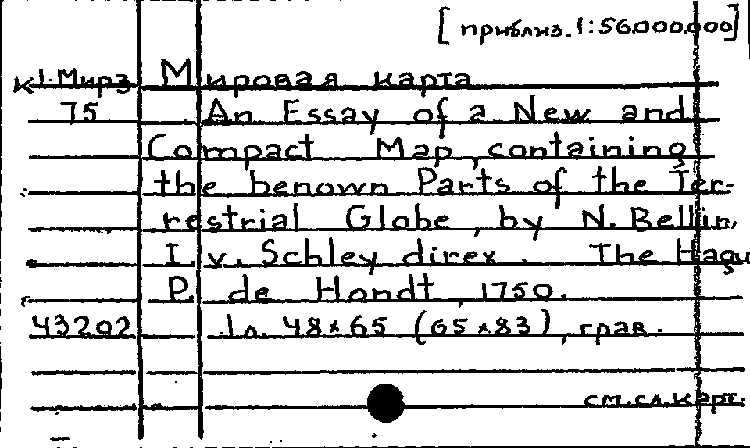 [приблиз. 1:56.000.000]
К 1.Мирз Мировая карта
75 An Essay of a New and
Compact Map, containing
the benown Parts of the Ter-
restrial Globe, by N. Bellin,
I. v. Schley direx. The Hagu
P. de Hondt, 1750.
43202 1л. 48×65 (65×83), грав.
см.сл.карт.